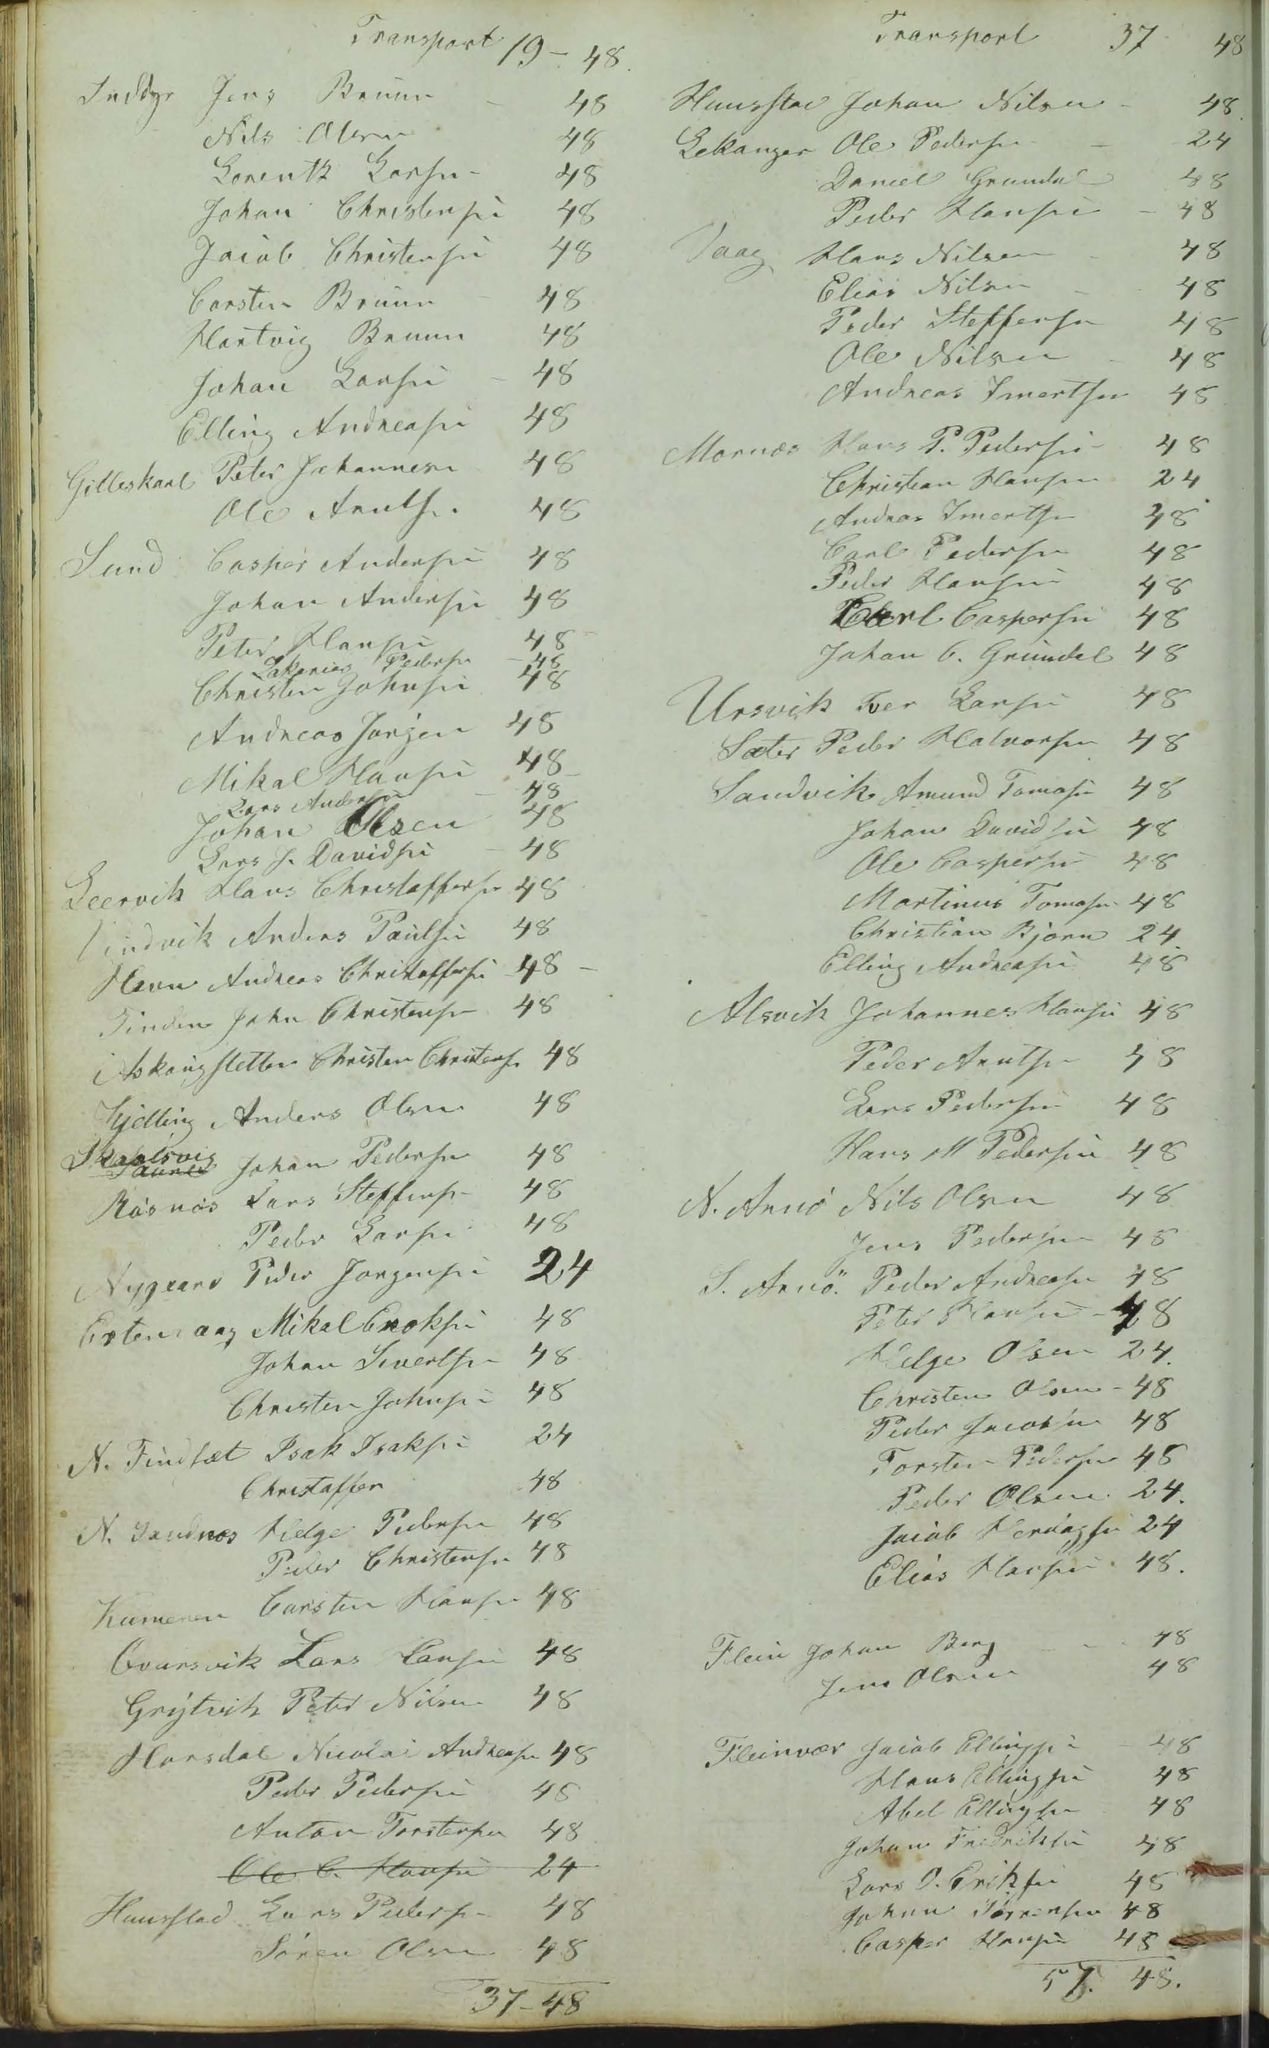 Transport 19 - 48.
Inddyr Jens Bruun - 48
Nils Olsen 48
Lorentz Larsen - 48
Johan Christensen 48
Jacob Christensen 48
Carsten Bruun - 48
Hartvig Bruun 48
Johan Larsen - 48
Elling Andreasen 48
Gilleskaal Peter Johannesen 48
Ole Arntsen 48
Sund Casper Andersen 48
Johan Andersen 48
Peter Hansen 48
Zakarias Pedersen - 48
Christen Johnsen 48
Andreas Jørgen 48
Mikal Hansen 48
Lars Andersen - 48
Johan Olsen 48
Lars J. Davidsen - 48
Leervik Hans Christoffersen 48
Vindvik Anders Paulsen 48
Havn Andreas Christoffersen 48 -
Tinden John Christensen 48
Christen Christensen 48
Kjelling Anders Olsen 48
Skaalsvig Johan Pedersen 48
Røsnøs Lars Steffensen 48
Peder Larsen 48
Nygaard Peder Jørgensen 24
Mikal Enoksen 48
Johan Sivertsen 48
Christen Johnsen 48
N. Findsæt Isak Isaksen 24
Christoffer 48
N. Sandnæs Helge Pedersen 48
Peder Christensen 48
Kumeren Carsten Hansen 48
Qvarsvik Lars Larsen 48
Grÿtvik Peter Nilsen 48
Horsdal Nicolai Andreasen 48
Peder Pedersen 48
Anton Torstensen 48
Ole C. Hansen 24
Huusstad Lars Pedersen 48
Søren Olsen 48
37 - 48
Transport 37 48
Huusstad Johan Nilsen - 48.
Lekanger Ole Pedersen - 24
Daniel Grundel 48
Peder Hansen - 48
Vaag Hans Nilsen - 48
Elias Nilsen - 48
Peder Steffensen 48
Ole Nilsen - 48
Andreas Imertsen 48
Mornæs Hans P. Pedersen 48
Christian Hansen 24
Andreas Imertsen 48
Carl Pedersen 48
Peder Hansen 48
Carl Caspersen 48
Johan C. Grundel 48
Ursvik Iver Larsen 48
Sæter Peder Halvorsen 48
Sandvik Amund Tomasen 48
Johan Davidsen 48
Ole Caspersen 48
Martinus Tomasen 48
Christian Bjørn 24
Elling Andreasen 48
Alsvik Johannes Hansen 48
Peder Arntsen 48
Lars Pedersen 48
Hans M Pedersen 48
N. Arnø Nils Olsen 48
Jens Pedersen 48
S. Arnø Peder Andreasen 48
Peter Hansen - 48
Helge Olsen 24.
Christen Olsen - 48
Peder Jacobsen 48
Torsten Pedersen 48
Peder Olsen 24.
Jacob 24
Elias Hansen 48.
Flein Johan Berg - - 48
Jens Olsen 48
Fleinvær Jacob Ellingsen - 48
Hans Ellingsen 48
Abel Ellingsen 48
Johan Fredriksen 48
Lars O. Eriksen 48
Johan 48
Casper Hansen 48
57. 48.